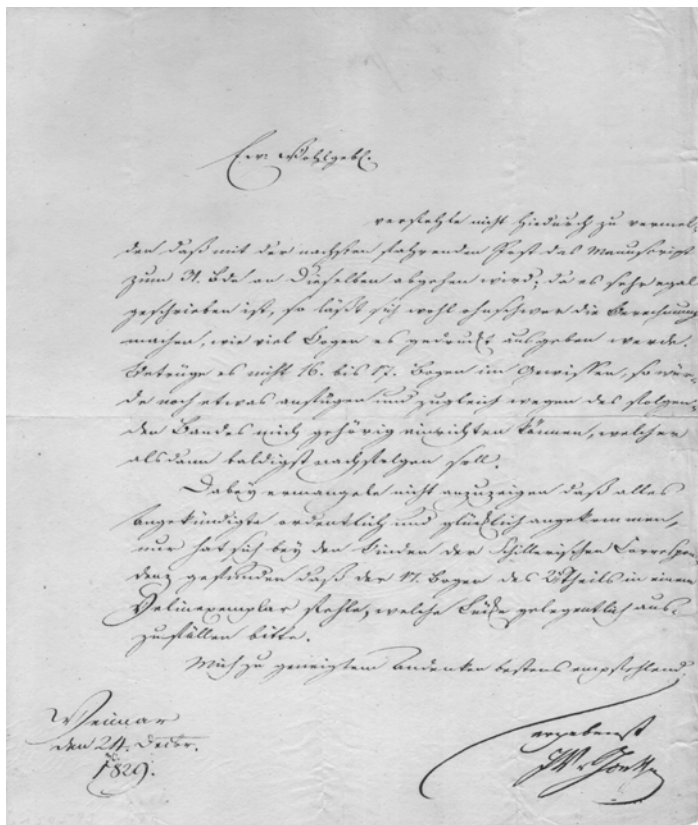 Ew: Wohlgebl.
verfehle nicht hiedurch zu vermel-
den daß mit der nächsten fahrenden Post das Manuscript
zum 31. Bde an Dieselben abgehen wird; da es sehr egal
geschrieben ist, so läßt sich wohl ohnschwer die Berechnung
machen, wie viel Bogen es gedruckt ausgeben werde.
Betrüge es nicht 16. bis 17. Bogen im Gewissen, so wür-
de noch etwas anfügen und zugleich wegen des folgen-
den Bandes mich gehörig einrichten können, welcher
alsdann baldigst nachfolgen soll.
Dabey ermangele nicht anzuzeigen daß alles
Angekündigte ordentlich und glücklich angekommen,
nur hat sich bey den Binden der Schillerischen Correspon-
denz gefunden daß der 17. Bogen des Theils in einem
Velinexemplar fehle, welche Lücke gelegentlich aus-
zufüllen bitte.
Mich zu geneigtem Andenken bestens empfehlend.
Weimar
den 24. Decbr.
1829.
ergebenst
JW v Goethe